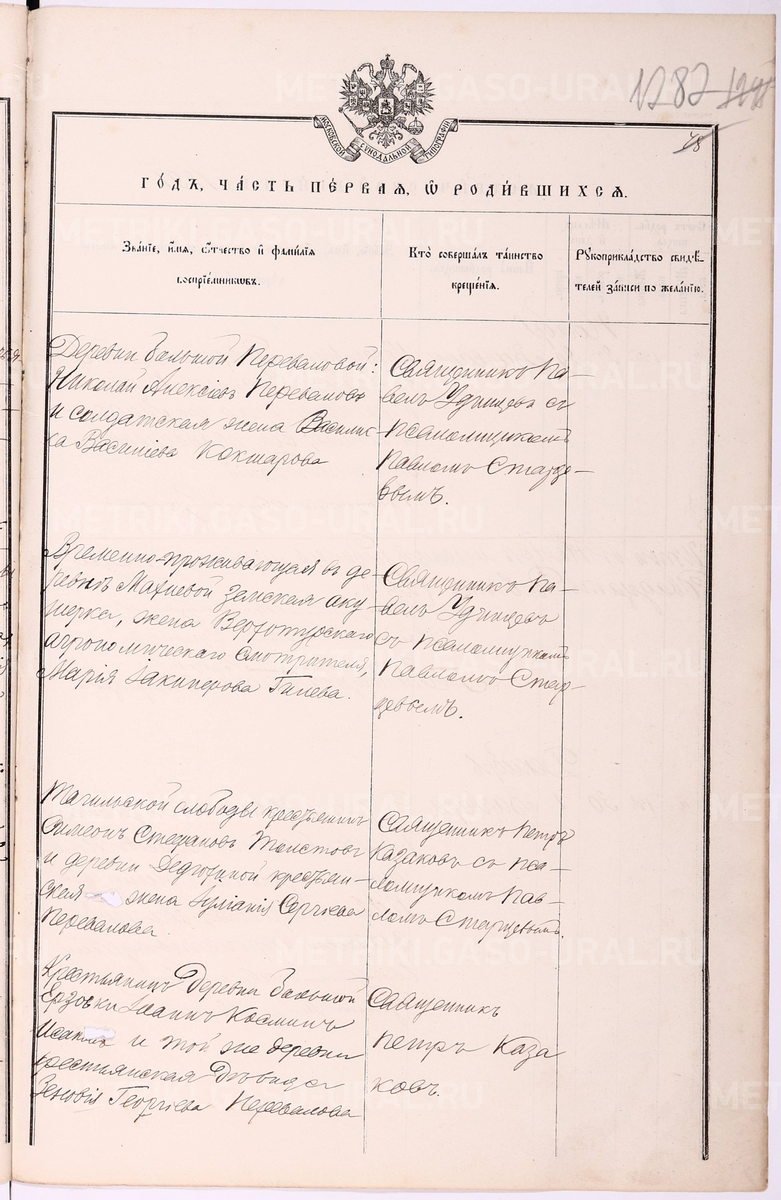 1282
48
МОСКОВСКОЙ СѴНОДАЛЬНОЙ ТИПОГРАФІИ
ГО́ДЪ, ЧА́СТЬ ПЕ́РВАЯ, Ѡ҆ РОДИ́ВШИХСЯ.
Зва́нїе, и҆́мя, ѻ҆́тчество и҆ фами́лїя
воспрїе́мниковъ.
Кто̀ соверша́лъ та́инство
креще́нїя.
Рꙋкоприкла́дство свидѣ́-
телей за́писи по жела́нїю.
Деревни Большой Переваловой:
Николай Алексіевъ Переваловъ
и солдатская жена Василис-
са Васильева Кокшарова
Священникъ Па-
велъ Удинцевъ съ
псаломщикомъ
Павломъ Старце-
вымъ.
Временно-проживающая въ де-
ревнѣ Махневой Земская аку-
шерка, жена Верхотурскаго
агрономическаго смотрителя,
Марія Гилева.
Священникъ Па-
велъ Удинцевъ
съ псаломщикомъ
Павломъ Стар-
цевымъ.
Тагильской слободы крестьянинъ
Симеонъ Стефановъ Толстовъ
и деревни крестьян-
ская жена Іуліанія Сергіева
Перевалова
Священникъ Петръ
Казаковъ съ пса-
ломщикомъ Пав-
ломъ Старцевымъ.
Крестьянинъ Деревни Большой
Ерзовки Іоаннъ Косминъ
Исаковъ и той же деревни
крестьянская Дѣвица
Зеновія Георгіева Перевалова
Священникъ
Петръ Каза
ковъ.
METRIKI.GASO-URAL.RU